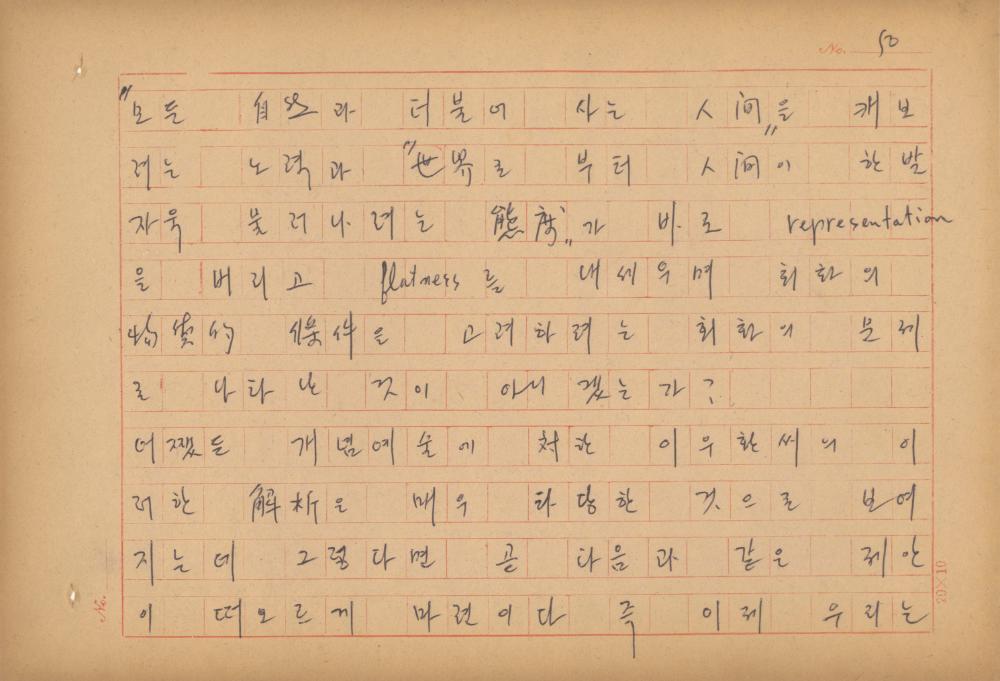 No. 50
"모든 自然과 더불어 사는 人間"을 캐보
려는 노력과 "世界로 부터 人間이 한발
자욱 물러나려는 態度"가 바로 representation
을 버리고 flatness를 내세우며 회화의
物質的 條件을 고려하려는 회화의 문제
로 나타난 것이 아니겠는가?
어쨌든 개념예술에 対한 이우환씨의 이
러한 解析은 매우 타당한 것으로 보여
지는데 그렇다면 곧 다음과 같은 제안
이 떠오르게 마련이다 즉 이제 우리는
No.
20×10